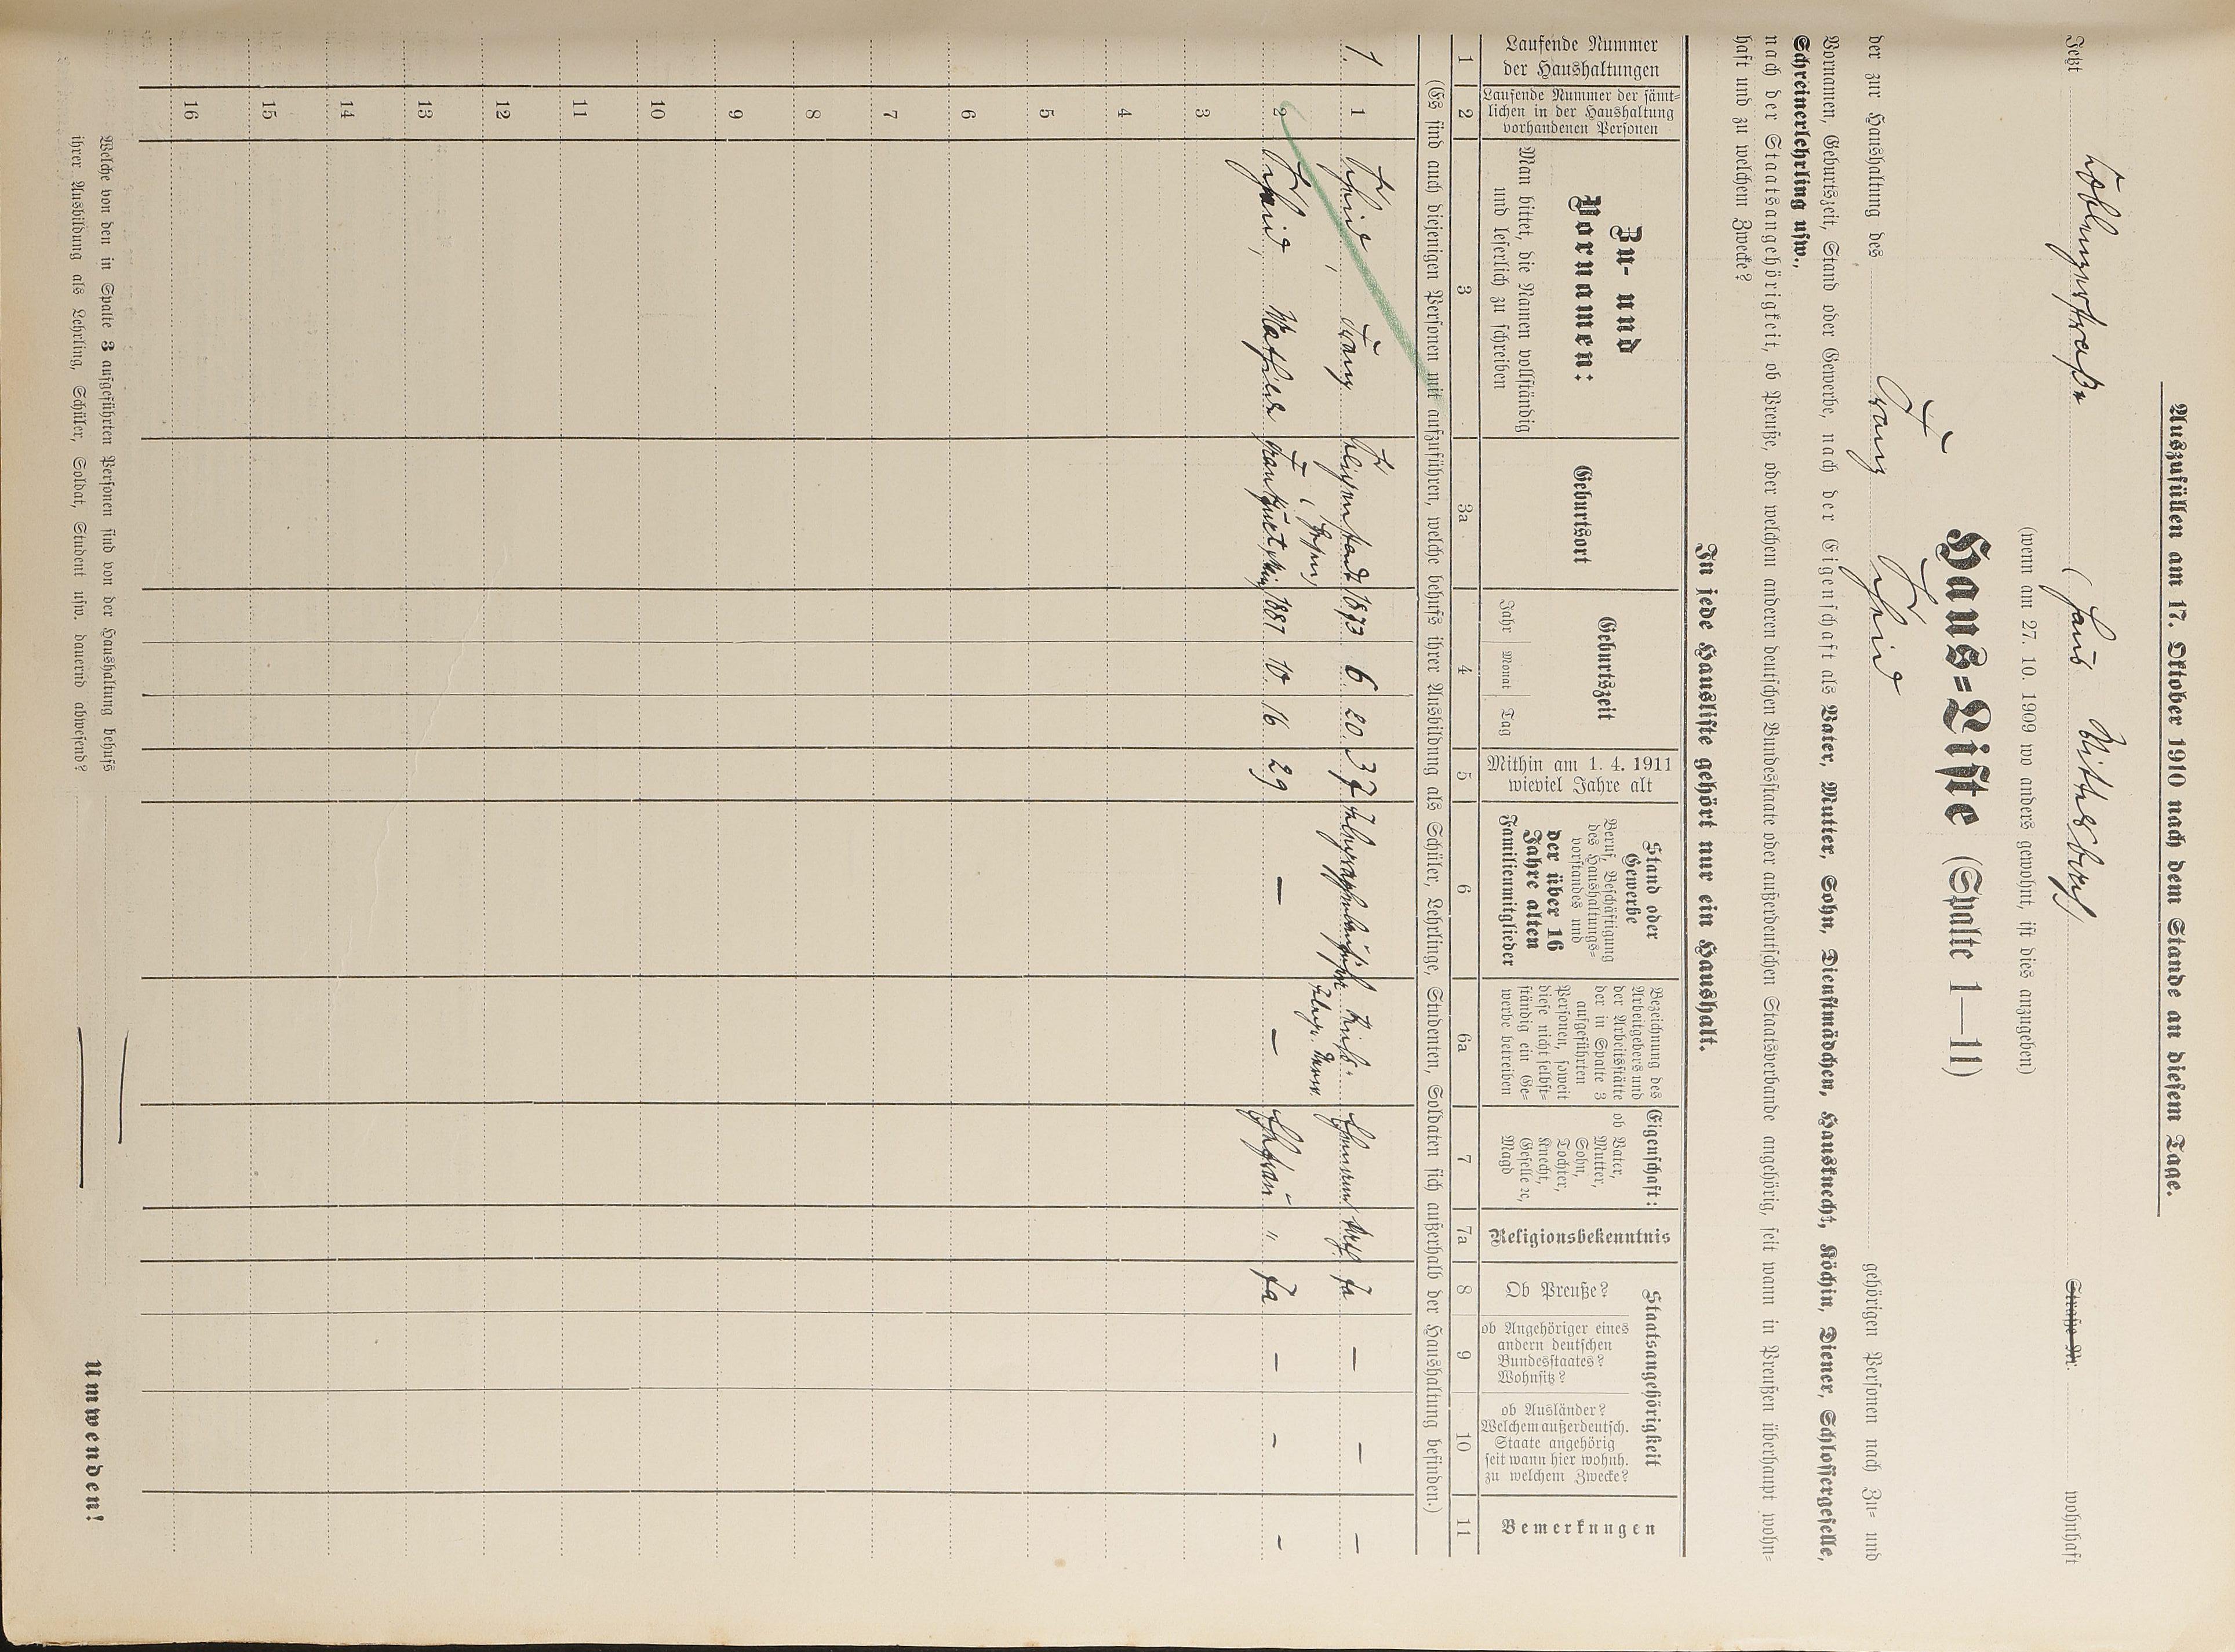 Auszufüllen am 17. Oktober 1910 nach dem Stande an diesem Tage.
Jetzt Coblenzerstraße (Haus Straße Nr. wohnhaft
(wenn am 27. 10. 1909 wo anders gewohnt, ist dies anzugeben)
Haus-Liste (Spalte 1—11)
der zur Haushaltung des Franz gehörigen Personen nach Zu- und
Vornamen, Geburtszeit, Stand oder Gewerbe, nach der Eigenschaft als Vater, Mutter, Sohn, Dienstmädchen, Hausknecht, Köchin, Diener, Schlossergeselle,
Schreinerlehrling usw.,
nach der Staatsangehörigkeit, ob Preuße, oder welchen anderen deutschen Bundesstaate oder außerdeutschen Staatsverbande angehörig, seit wann in Preußen überhaupt wohn-
haft und zu welchem Zwecke?
In jede Hausliste gehört nur ein Haushalt.
Laufende Nummer
der Haushaltungen
Laufende Nummer der sämt-
lichen in der Haushaltung
vorhandenen Personen
Zu- und
Vornamen:
Man bittet, die Namen vollständig
und leserlich zu schreiben
Geburtsort
Geburtszeit
Jahr Monat Tag
Mithin am 1. 4. 1911
wieviel Jahre alt
Stand oder
Gewerbe
Beruf, Beschäftigung
des Haushaltungs-
vorstandes und
der über 16
Jahre alten
Familienmitglieder
Bezeichnung des
Arbeitgebers und
der Arbeitsstätte
der in Spalte 3
aufgeführten
Personen, soweit
diese nicht selbst-
ständig ein Ge-
werbe betreiben
Eigenschaft:
ob Vater,
Mutter,
Sohn,
Tochter,
Knecht,
Geselle ꝛc,
Magd
Religionsbekenntnis
Staatsangehörigkeit
Ob Preuße?
ob Angehöriger eines
andern deutschen
Bundesstaates?
Wohnsitz?
ob Ausländer?
Welchem außerdeutsch.
Staate angehörig
seit wann hier wohnh.
zu welchem Zwecke?
Bemerkungen
1 2 3 3a 4 5 6 6a 7 7a 8 9 10 11
(Es sind auch diejenigen Personen mit aufzuführen, welche behufs ihrer Ausbildung als Schüler, Lehrlinge, Studenten, Soldaten sich außerhalb der Haushaltung befinden.)
1. 1 Franz 1873 6 20 37 Ehemann Ja — — —
2 Mathilde Frankfurt, Main 1881 10 16 29 — — Ehefrau " Ja — — —
3
4
5
6
7
8
9
10
11
12
13
14
15
16
Welche von den in Spalte 3 aufgeführten Personen sind von der Haushaltung behufs
ihrer Ausbildung als Lehrling, Schüler, Soldat, Student usw. dauernd abwesend?
Umwenden!